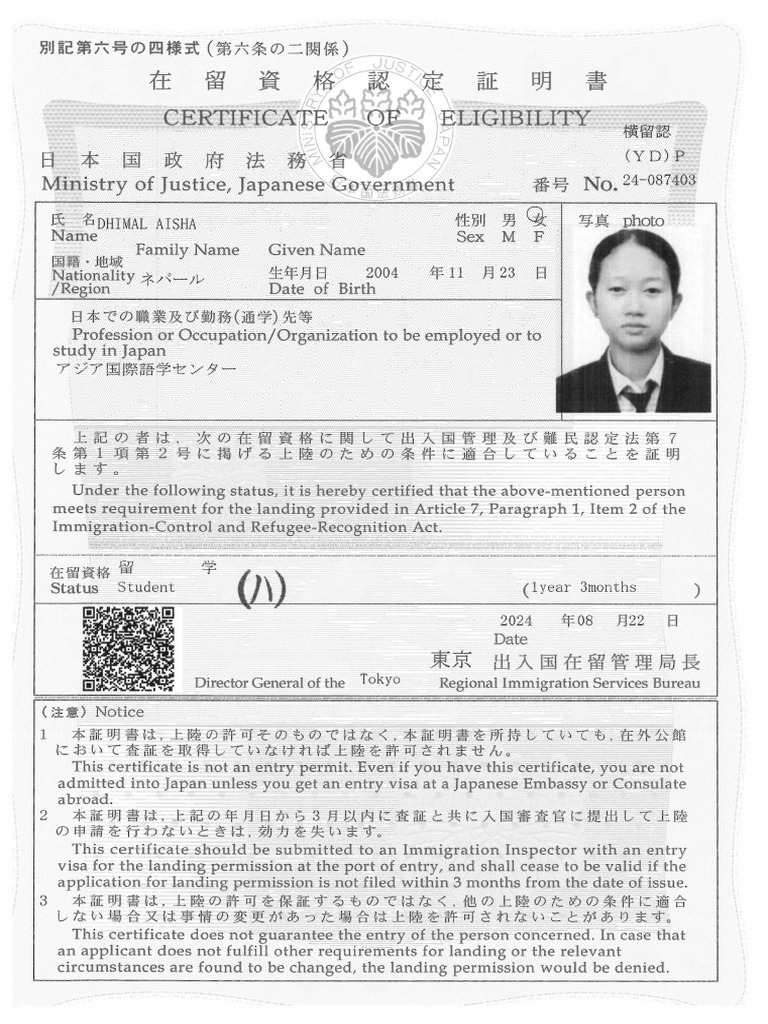 別記第六号の四様式（第六条の二関係）
在留資格認定証明書
CERTIFICATE OF ELIGIBILITY
MINISTRY OF JUSTICE JAPAN
横留認
日本国政府法務省
(YD)P
Ministry of Justice, Japanese Government
番号 No. 24-087403
氏 名 DHIMAL AISHA
性別 男 女
写真 photo
Name
Sex M F
Family Name Given Name
国籍・地域
Nationality ネパール
生年月日 2004 年 11 月 23 日
/Region
Date of Birth
日本での職業及び勤務(通学)先等
Profession or Occupation/Organization to be employed or to
study in Japan
アジア国際語学センター
上記の者は，次の在留資格に関して出入国管理及び難民認定法第７
条第１項第２号に掲げる上陸のための条件に適合していることを証明
します。
Under the following status, it is hereby certified that the above-mentioned person
meets requirement for the landing provided in Article 7, Paragraph 1, Item 2 of the
Immigration-Control and Refugee-Recognition Act.
在留資格 留 学
Status Student
(ハ)
(1year 3months )
2024 年 08 月 22 日
Date
東京 出入国在留管理局長
Director General of the Tokyo Regional Immigration Services Bureau
（注意）Notice
1 本証明書は，上陸の許可そのものではなく，本証明書を所持していても，在外公館
において査証を取得していなければ上陸を許可されません。
This certificate is not an entry permit. Even if you have this certificate, you are not
admitted into Japan unless you get an entry visa at a Japanese Embassy or Consulate
abroad.
2 本証明書は，上記の年月日から３月以内に査証と共に入国審査官に提出して上陸
の申請を行わないときは，効力を失います。
This certificate should be submitted to an Immigration Inspector with an entry
visa for the landing permission at the port of entry, and shall cease to be valid if the
application for landing permission is not filed within 3 months from the date of issue.
3 本証明書は，上陸の許可を保証するものではなく，他の上陸のための条件に適合
しない場合又は事情の変更があった場合は上陸を許可されないことがあります。
This certificate does not guarantee the entry of the person concerned. In case that
an applicant does not fulfill other requirements for landing or the relevant
circumstances are found to be changed, the landing permission would be denied.